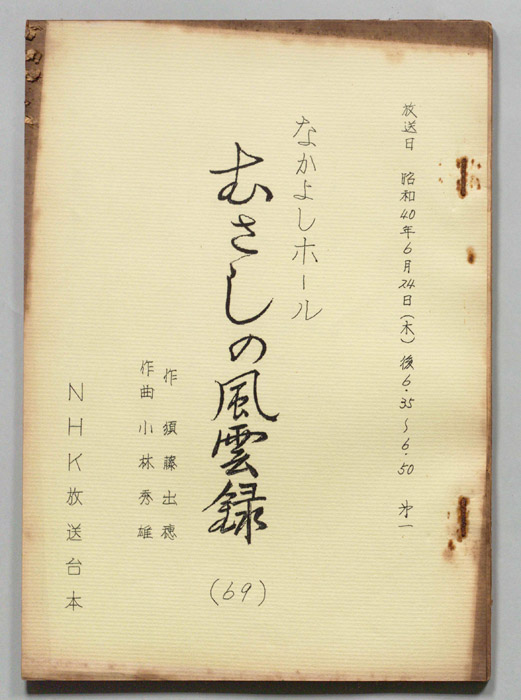 放送日 昭和40年6月24日(木)後6.35~6.50 第一
なかよしホール
むさしの風雲録
(69)
作 須藤出穂
作曲 小林秀雄
NHK放送台本